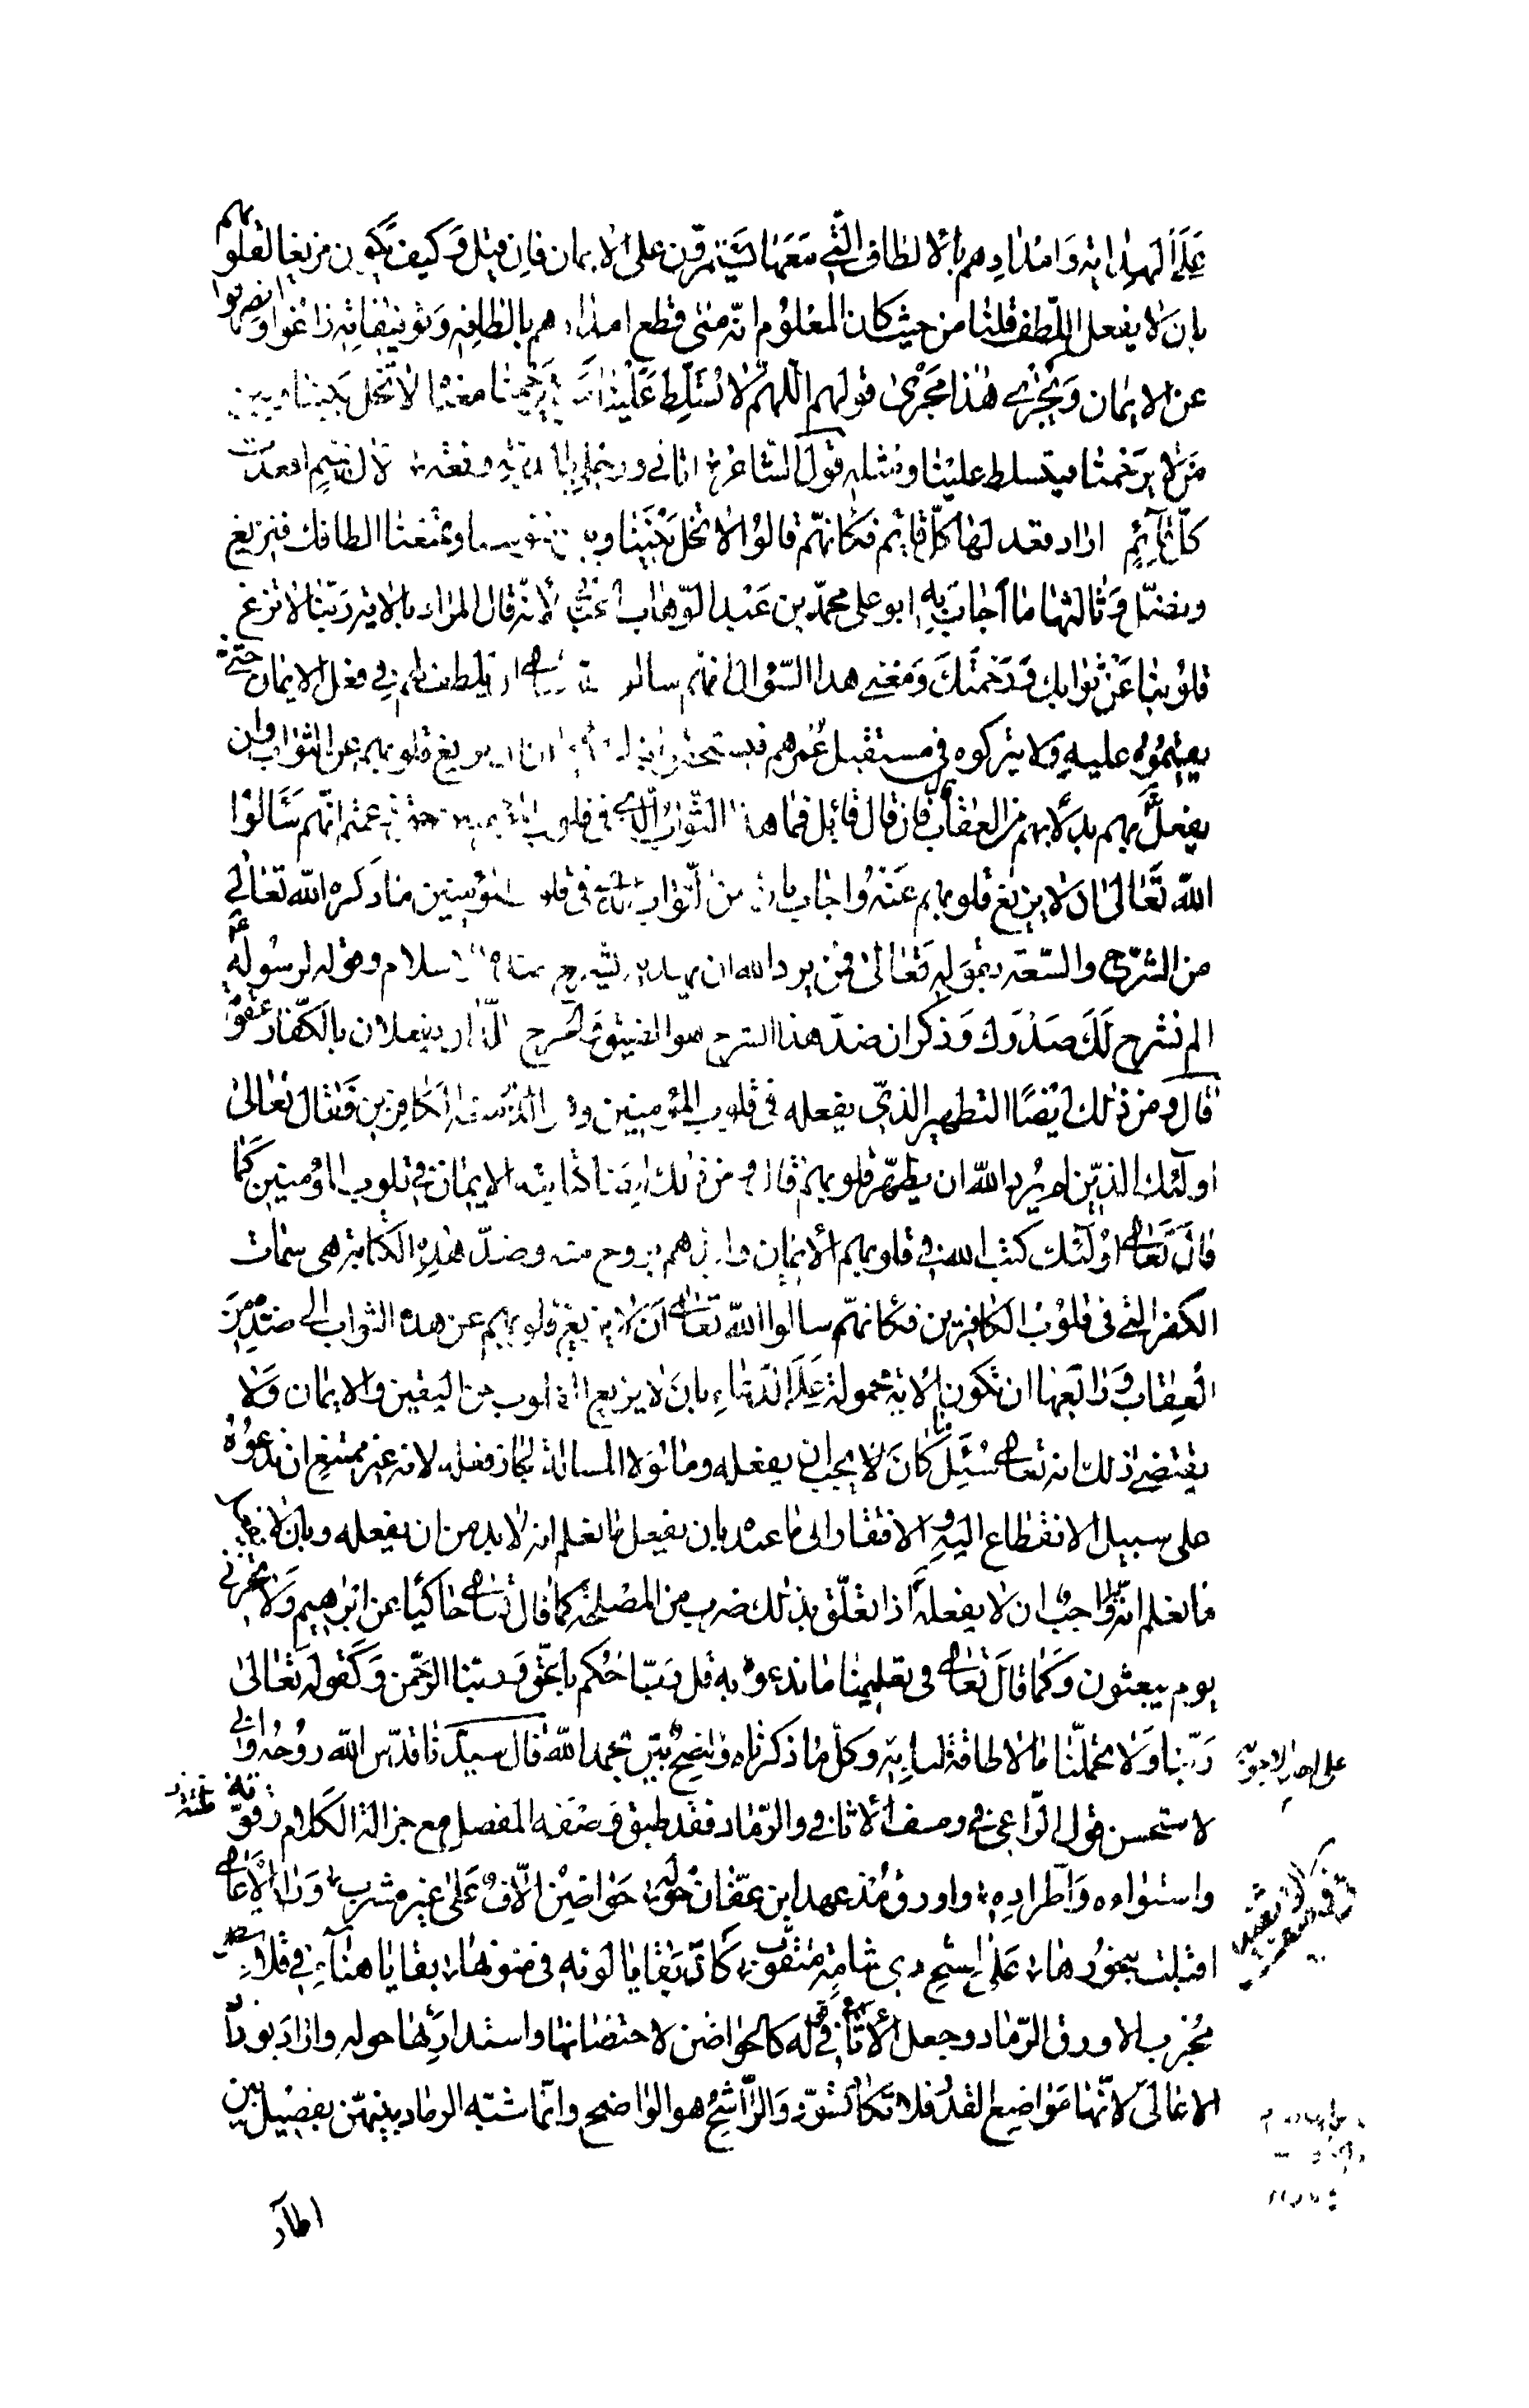 على الهداية وامدادهم بالالطاف التي معها يستمرون على الايمان فان قيل وكيف يكون مزيغا لقلوبهم
بان لا يفعل اللطف قلنا من حيث كان المعلوم انه متى قطع امدادهم بالطافه وتوفيقاته زاغوا وانصرفوا
عن الايمان ويجري هذا مجرى قولهم اللهم لا تسلط علينا من لا يرحمنا معناه لا تخل بيننا وبين
من لا يرحمنا فيتسلط علينا ومثله قول الشاعر اتاني ورحلي
كل قائم اراد فقعد لها كل قائم فكانهم قالوا لا تخل بيننا وبين نفوسنا وتمنعنا الطافك فنزيغ
ونضل وثالثها ما اجاب به ابو علي محمد بن عبد الوهاب لانه قال المراد بالاية ربنا لا تزغ
قلوبنا عن ثوابك ورحمتك ومعنى هذا السؤال انهم سالوا ان يلطف لهم في فعل الايمان حتى
يقيموا عليه ولا يتركوه في مستقبل عمرهم فيستحقوا ان يزيغ قلوبهم عن الثواب وان
يفعل بهم بدلا منه العقاب فان قال قائل فما هذا الثواب الذي في قلوب المؤمنين حتى زعمتم انهم سالوا
الله تعالى ان لا يزيغ قلوبهم عنه واجاب بان من الثواب الذي في قلوب المؤمنين ما ذكره الله تعالى
من الشرح والسعة بقوله تعالى فمن يرد الله ان يهديه يشرح صدره للاسلام وقوله لرسوله
الم نشرح لك صدرك وذكر ان ضد هذا الشرح هو الضيق والحرج اللذان يفعلان بالكفار عقوبة
قال ومن ذلك ايضا التطهير الذي يفعله في قلوب المؤمنين وهو الذي منعه الكافرين فقال تعالى
اولئك الذين لم يرد الله ان يطهر قلوبهم قال ومن ذلك ايضا كتابته الايمان في قلوب المؤمنين كما
قال تعالى اولئك كتب الله في قلوبهم الايمان وايدهم بروح منه وضد هذه الكتابة هي سمات
الكفر التي في قلوب الكافرين فكانهم سالوا الله تعالى ان لا يزيغ قلوبهم عن هذه الثواب الى ضده من
العقاب ورابعها ان تكون الاية محمولة على الدعاء بان لا يزيغ القلوب عن اليقين والايمان ولا
يقتضي ذلك انه تعالى سئل ما كان لا يجب ان يفعله وما لولا المسالة لجاز فعله لانه غير ممتنع ان ندعوه
على سبيل الانقطاع اليه والافتقار الى ما عنده بان يفعل ما نعلم انه لا بد من ان يفعله وبان لا يفعل
ما نعلم انه واجب ان لا يفعله اذا تعلق بذلك ضرب من المصلحة كما قال تعالى حاكيا عن ابراهيم ولا تخزني
يوم يبعثون وكما قال تعالى في تعليمنا ما ندعوه به قل رب احكم بالحق وربنا الرحمن وكقوله تعالى
ربنا ولا تحملنا ما لا طاقة لنا به وكل ما ذكرناه واضح بين بحمد الله قال سيدنا قدس الله روحه واني
لاستحسن قول الراعي في وصف الاثافي والرماد فقد طبق وصفه المفصل مع جزالة الكلام وقوته
واستوائه واطراده واورق مذ عهد ابن عفان حوله حواضن الاف على غير مشرب وراد الاعالي
اقبلت بنحورها على راشح ذي شامة متقوب كان بقايا لونه في متونها بقايا هناء في قلائص
مجرب الاورق الرماد وجعل الاثافي له كالحواضن لاحتضانها واستدارتها حوله واراد بوراد
الاعالي لانها مواضع القدر فلا تكاد تسود والراشح هو الواضح وانما شبه الرماد بينهن بفصيل بين
اظآر